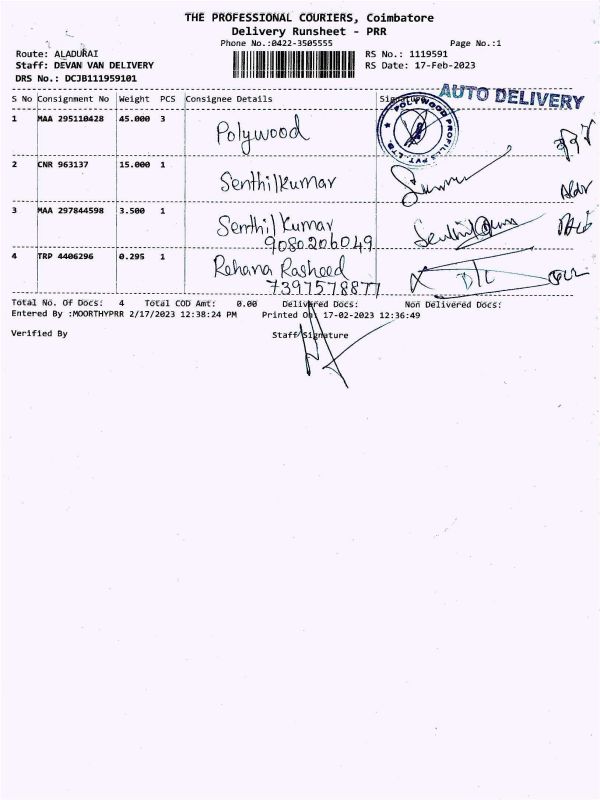 THE PROFESSIONAL COURIERS, Coimbatore
Delivery Runsheet - PRR
Phone No.:0422-3505555 Page No.:1
Route: ALADURAI RS No.: 1119591
Staff: DEVAN VAN DELIVERY RS Date: 17-Feb-2023
DRS No.: DCJB111959101
AUTO DELIVERY
S No Consignment No Weight PCS Consignee Details Signature
POLYWOOD PROFILES PVT. LTD.
1 MAA 295110428 45.000 3 Polywood
2 CNR 963137 15.000 1 Senthilkumar
3 MAA 297844598 3.500 1 Senthil Kumar
9080206049
4 TRP 4406296 0.295 1 Rehana Rasheed
7397578877
Total No. Of Docs: 4 Total COD Amt: 0.00 Delivered Docs: Non Delivered Docs:
Entered By :MOORTHYPRR 2/17/2023 12:38:24 PM Printed On 17-02-2023 12:36:49
Verified By Staff Signature